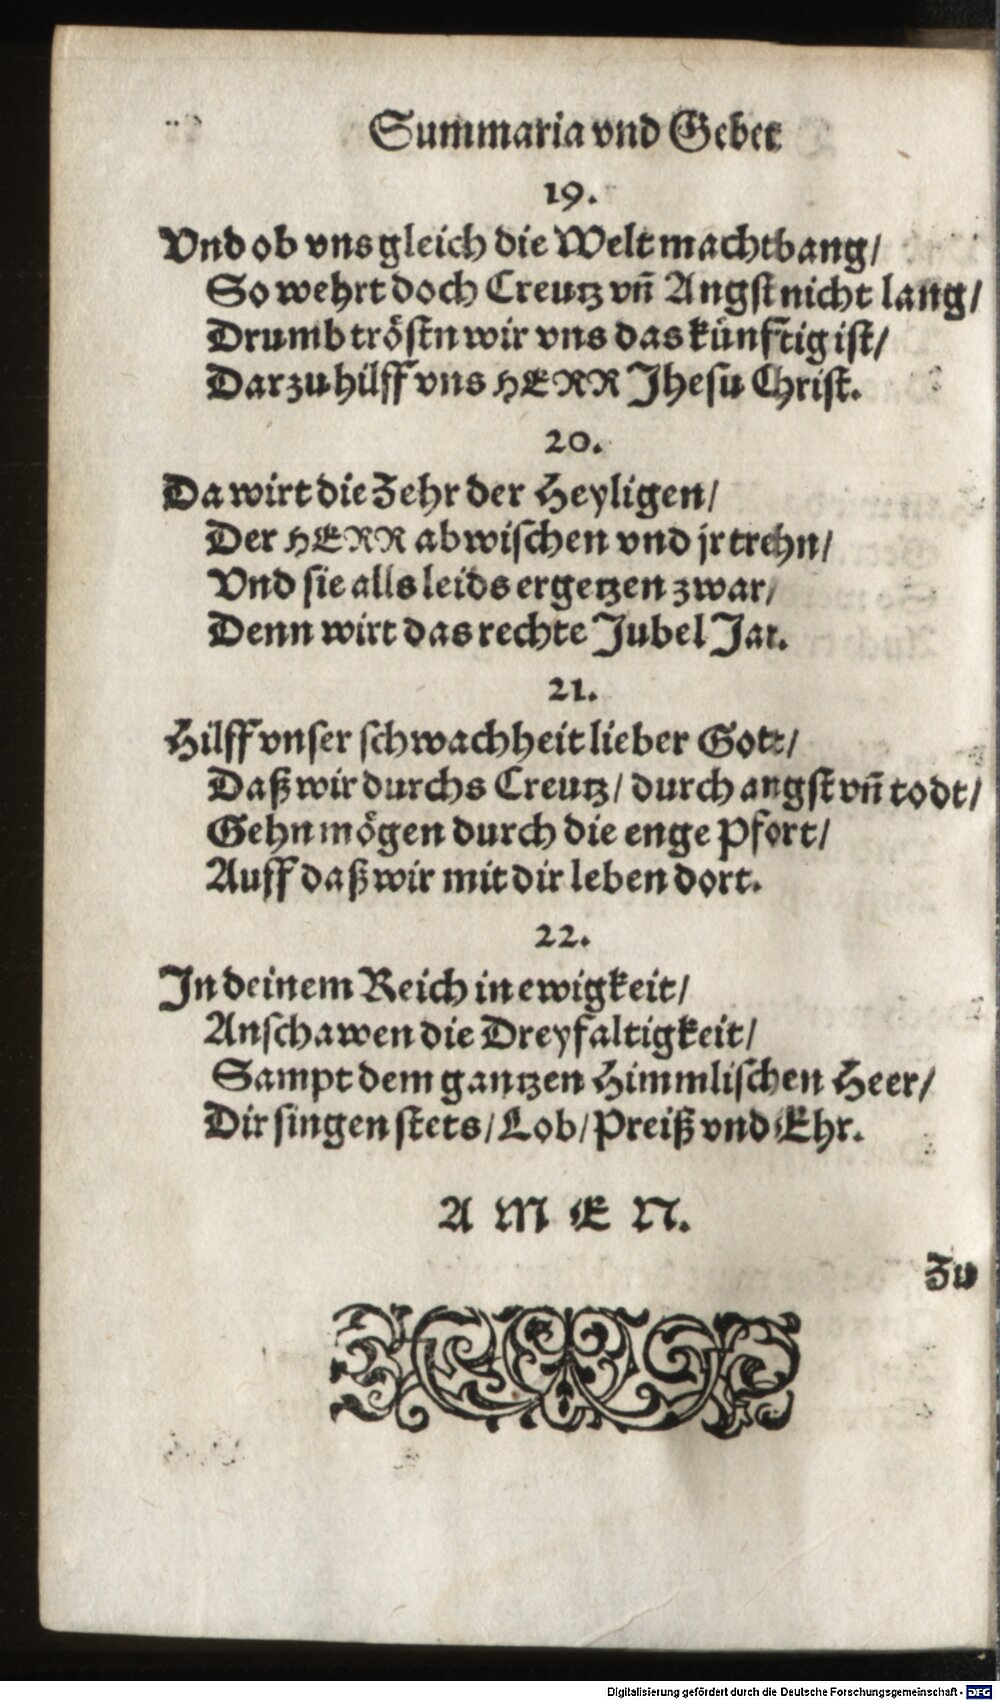 Summaria vnd Gebet
19.
Vnd ob vns gleich die Welt macht bang/
So wehrt doch Creutz vn̄ Angst nicht lang/
Drumb tröstn wir vns das künftig ist/
Darzu hilff vns HERR Jhesu Christ.
20.
Da wirt die Zehr der Heyligen/
Der HERR abwischen vnd jr trehn/
Vnd sie alls leids ergetzen zwar/
Denn wirt das rechte Jubel Jar.
21.
Hilff vnser schwachheit lieber Gott/
Daß wir durchs Creutz/ durch angst vn̄ todt/
Gehn mögen durch die enge Pfort/
Auff daß wir mit dir leben dort.
22.
In deinem Reich in ewigkeit/
Anschawen die Dreyfaltigkeit/
Sampt dem gantzen Himmlischen Heer/
Dir singen stets/ Lob/ Preiß vnd Ehr.
A M E N.
Zu
Digitalisierung gefördert durch die Deutsche Forschungsgemeinschaft - DFG